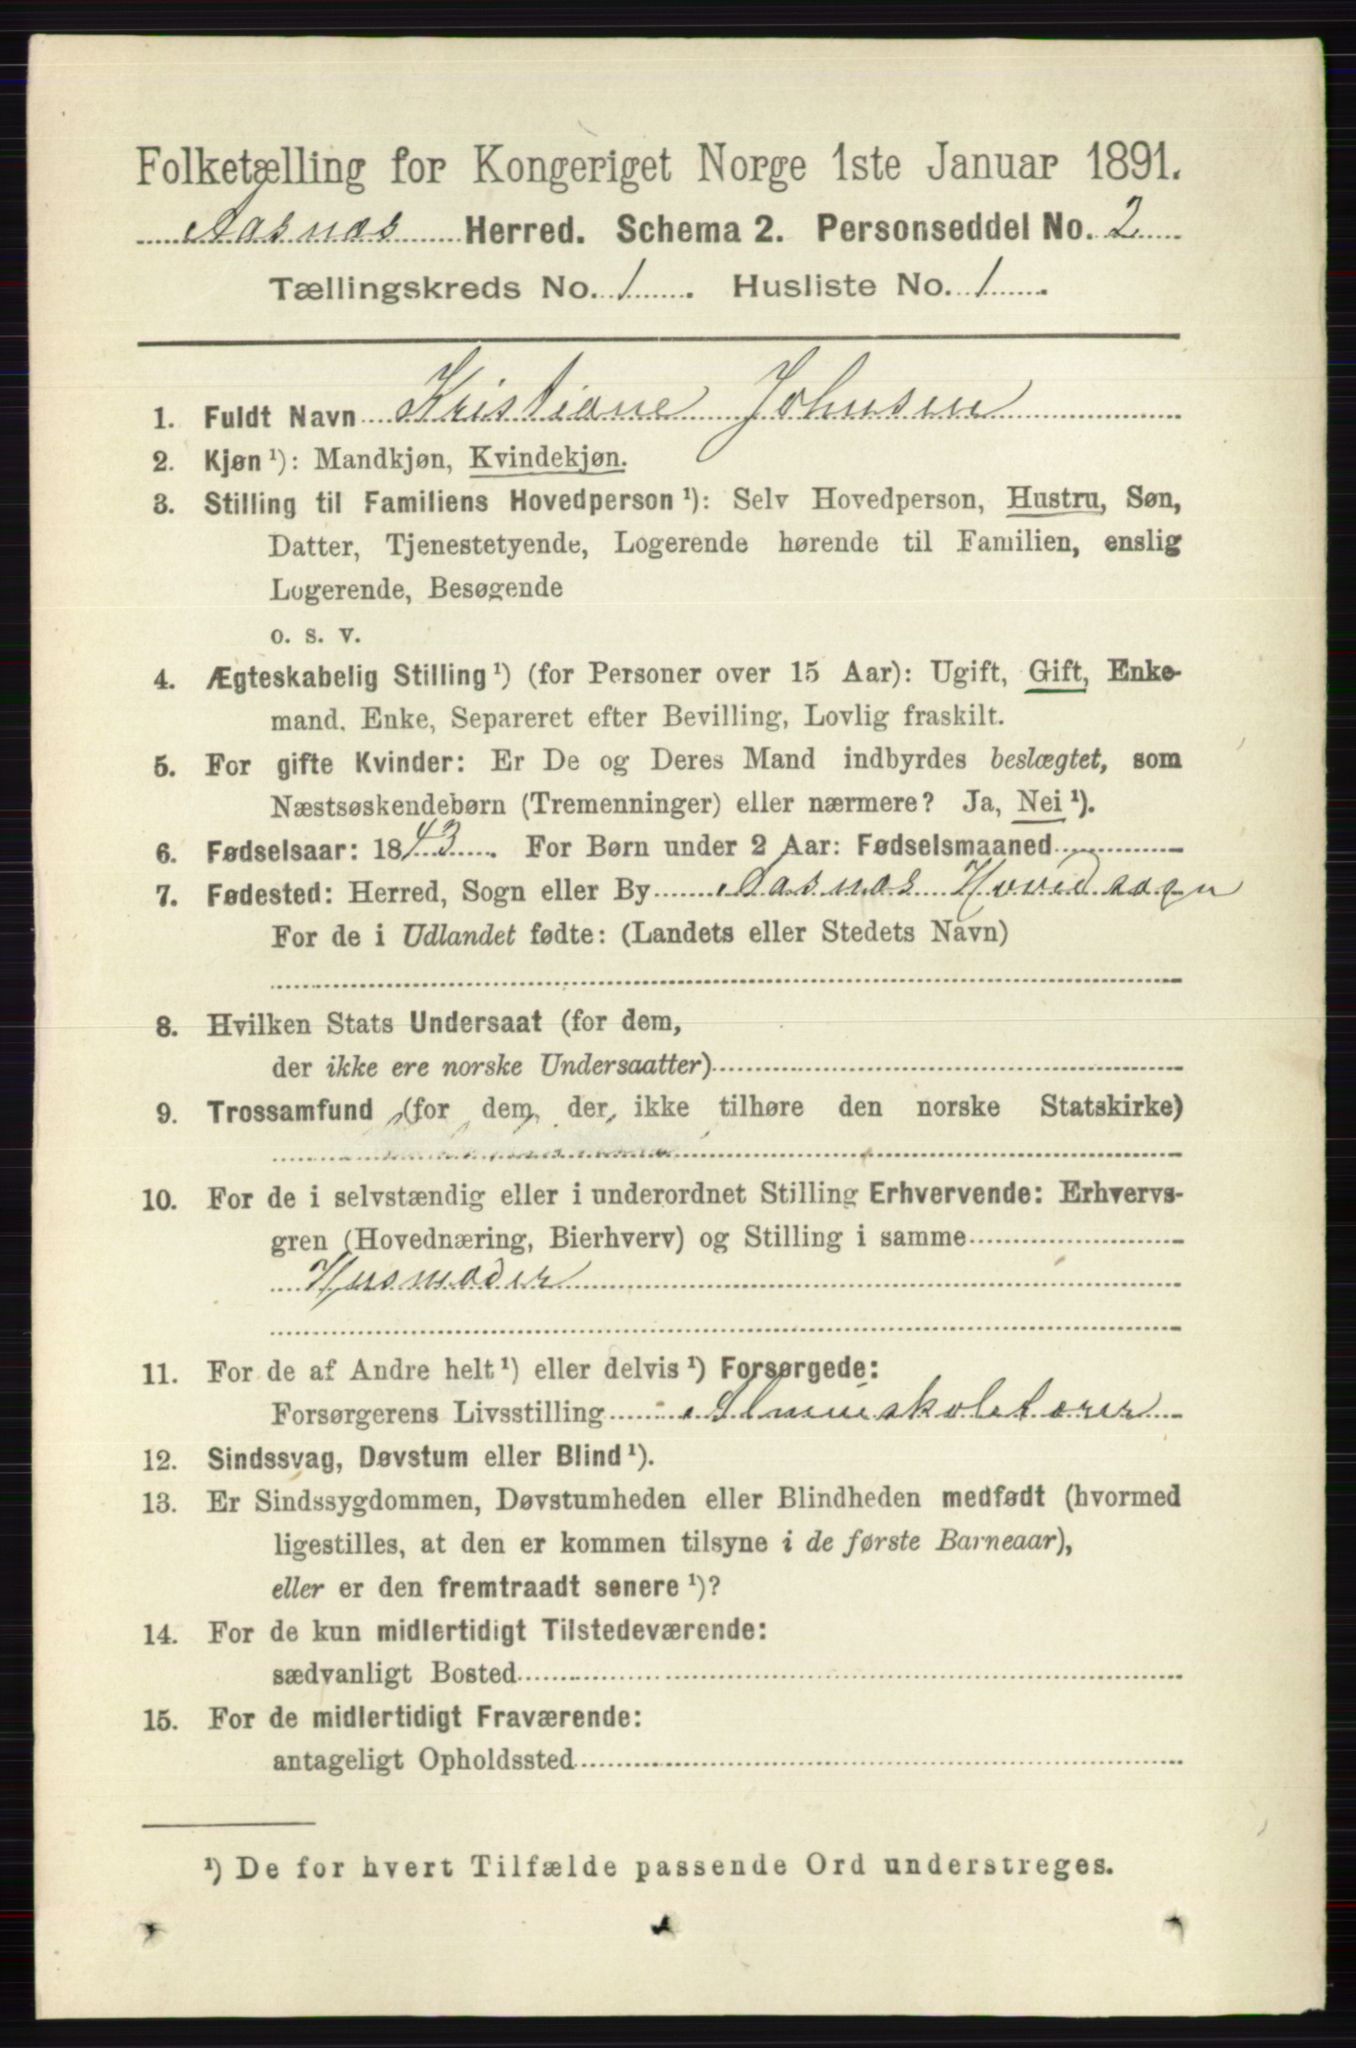 Folketælling for Kongeriget Norge 1ste Januar 1891.
Aasnæs Herred. Schema 2. Personseddel No. 2
Tællingskreds No. 1. Husliste No. 1.
1. Fuldt Navn Kristiane Johnsen
2. Kjøn ¹): Mandkjøn, Kvindekjøn.
3. Stilling til Familiens Hovedperson ¹): Selv Hovedperson, Hustru, Søn,
Datter, Tjenestetyende, Logerende hørende til Familien, enslig
Logerende, Besøgende
o. s. v.
4. Ægteskabelig Stilling ¹) (for Personer over 15 Aar): Ugift, Gift, Enke-
mand, Enke, Separeret efter Bevilling, Lovlig fraskilt.
5. For gifte Kvinder: Er De og Deres Mand indbyrdes beslægtet, som
Næstsøskendebørn (Tremenninger) eller nærmere? Ja, Nei ¹).
6. Fødselsaar: 1843. For Børn under 2 Aar: Fødselsmaaned
7. Fødested: Herred, Sogn eller By Aasnæs Hovedsogn
For de i Udlandet fødte: (Landets eller Stedets Navn)
8. Hvilken Stats Undersaat (for dem,
der ikke ere norske Undersaatter)
9. Trossamfund (for dem, der, ikke tilhøre den norske Statskirke)
10. For de i selvstændig eller i underordnet Stilling Erhvervende: Erhvervs-
gren (Hovednæring, Bierhverv) og Stilling i samme
Husmoder
11. For de af Andre helt ¹) eller delvis ¹) Forsørgede:
Forsørgerens Livsstilling Almueskolelærer
12. Sindssvag, Døvstum eller Blind ¹).
13. Er Sindssygdommen, Døvstumheden eller Blindheden medfødt (hvormed
ligestilles, at den er kommen tilsyne i de første Barneaar),
eller er den fremtraadt senere ¹)?
14. For de kun midlertidigt Tilstedeværende:
sædvanligt Bosted
15. For de midlertidigt Fraværende:
antageligt Opholdssted
¹) De for hvert Tilfælde passende Ord understreges.